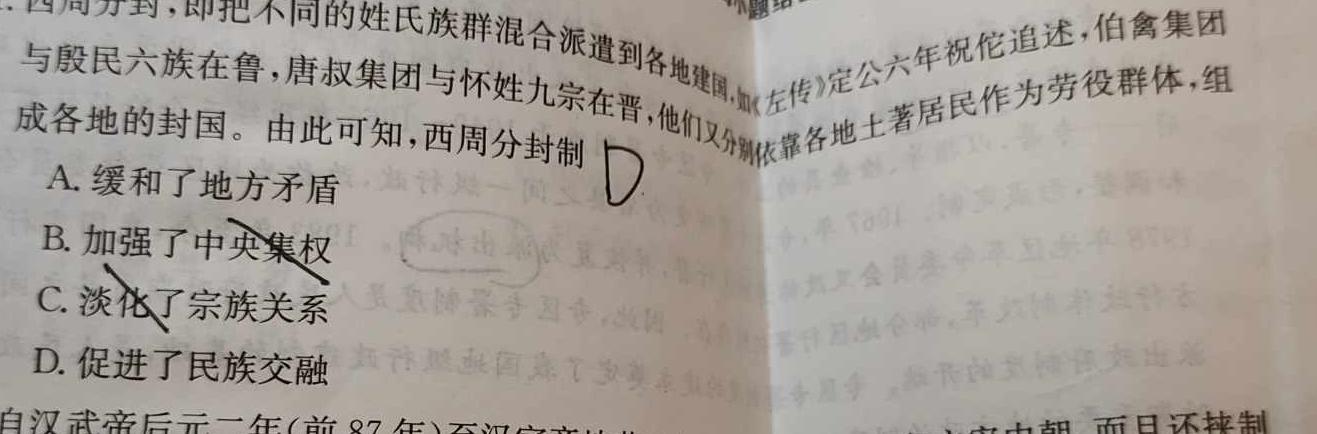 西周分封,即把不同的姓氏族群混合派遣到各地建国,如《左传》定公六年祝佗追述,伯禽集团
与殷民六族在鲁,唐叔集团与怀姓九宗在晋,他们又分别依靠各地土著居民作为劳役群体,组
成各地的封国。由此可知,西周分封制 D
A. 缓和了地方矛盾
B. 加强了中央集权
C. 淡化了宗族关系
D. 促进了民族交融
自汉武帝后元二年(前87年)至汉
中朝,而且还挟制